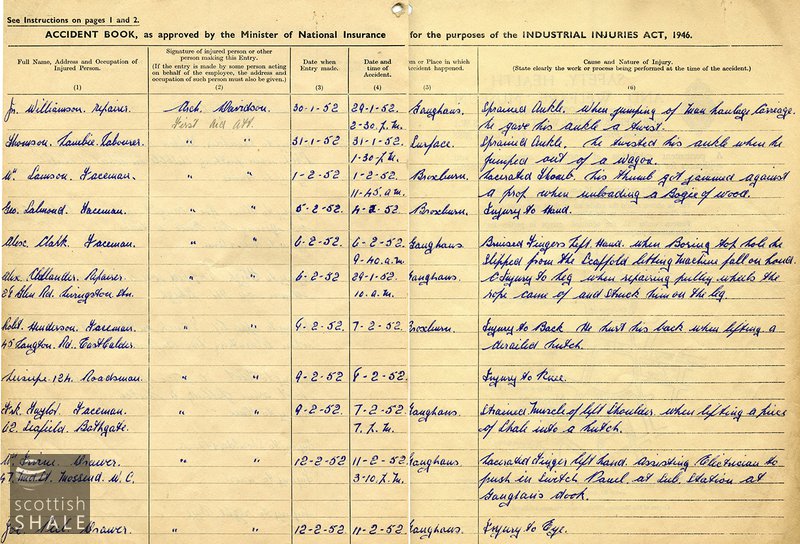 See Instructions on pages 1 and 2.
ACCIDENT BOOK, as approved by the Minister of National Insurance for the purposes of the INDUSTRIAL INJURIES ACT, 1946.
Full Name, Address and Occupation of Injured Person.
(1)
Signature of injured person or other person making this Entry.
(If the entry is made by some person acting on behalf of the employee, the address and occupation of such person must also be given.)
(2)
Date when Entry made.
(3)
Date and time of Accident.
(4)
or Place in which accident happened.
(5)
Cause and Nature of Injury.
(State clearly the work or process being performed at the time of the accident.)
(6)
Williamson, repairer. Arch. Davidson. 30-1-52 29-1-52. Ganghans. Sprained Ankle. when jumping of Man haulage Carriage.
First Aid Att. 2-30.P.M. he gave his ankle a twist.
Thomson. Labourer. " " 31-1-52 31-1-52. Surface. Sprained Ankle. he twisted his ankle when he
1-30.P.M. jumped out of a wagon.
Wm Lamson Faceman. " " 1-2-52 1-2-52 Broxburn. Lacerated Thumb. his thumb got jammed against
11-45.a.m a prop when unloading a Bogie of wood.
Geo. Salmond. Faceman. " " 5-2-52 4-2-52 Broxburn. Injury to Hand.
Alex. Clark. Faceman " " 6-2-52 6-2-52 Ganghans Bruised Fingers Left Hand. when Boring top hole he
9-40.a.m slipped from the Scaffold letting Machine fall on hand.
Alex. Repairer " " 6-2-52 29-1-52 Ganghans. Injury to leg when repairing pulley wheels the
Glen Rd. Livingston Stn. 10.a.m. rope came of and struck him on the leg.
Robt. Henderson. Faceman. " " 9-2-52 7-2-52. Broxburn. Injury to Back He hurt his back when lifting a
45 Langton Rd. East Calder. derailed hutch.
124. Roadsman. " " 9-2-52 8-2-52. Injury to Knee.
Taylor. Faceman. " " 9-2-52 7-2-52 Ganghans. Strained Muscle of left Shoulder when lifting a piece
62. Seafield. Bathgate. 7.P.M. of Shale into a hutch.
Wm Irvine Drawer. " " 12-2-52 11-2-52 Ganghans. Lacerated Finger left hand. Assisting Electrician to
Mossend. W.C. 3-10.P.M. push in Switch Panel at Sub. Station at
Ganghans
Drawer " " 12-2-52 11-2-52 Ganghans. Injury to Eye.
scottish
SHALE